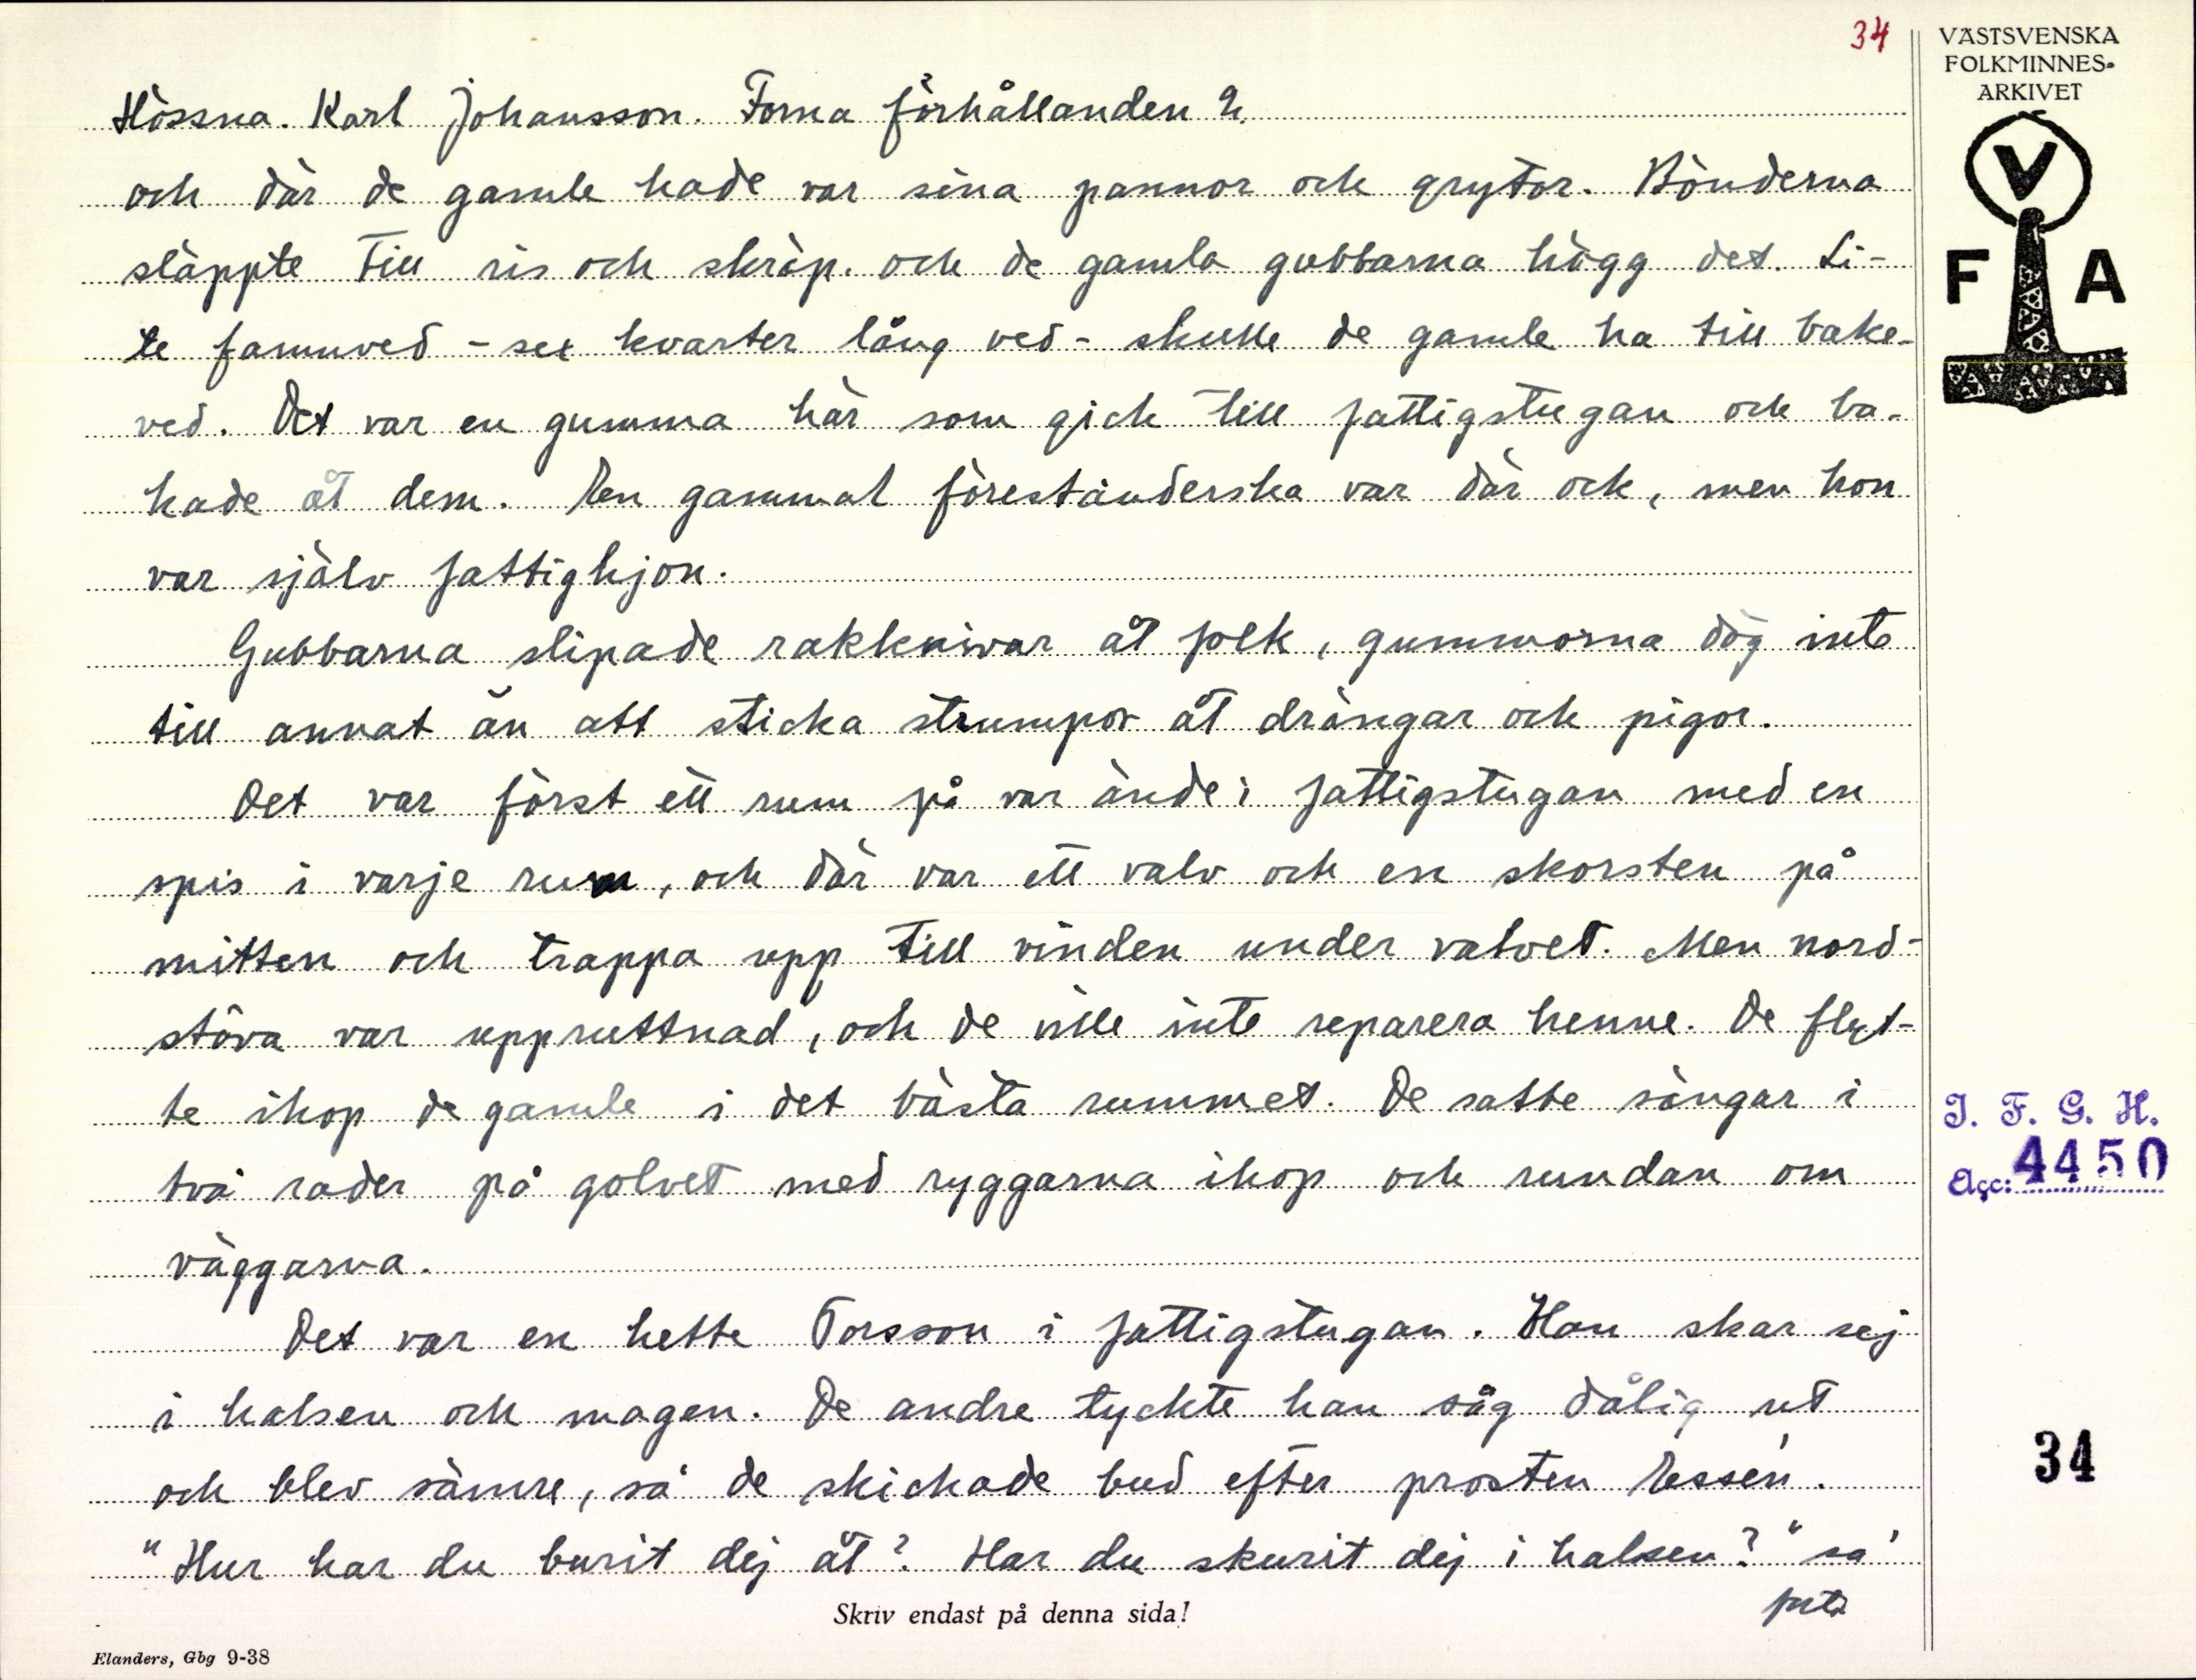 34
VÄSTSVENSKA
FOLKMINNES-
ARKIVET
V
F A
Hössna. Karl Johansson. Forna förhållanden 2.
och där de gamle hade var sina pannor och grytor. Bönderna
släppte till ris och skräp. och de gamla gubbarna högg det. Li-
te famnved - sex kvarter lång ved - skulle de gamle ha till bake-
ved. Det var en gumma här som gick till fattigstugan och ba-
kade åt dem. En gammal förestånderska var där ock, men hon
var själv fattighjon.
Gubbarna slipade rakknivar åt folk, gummorna dög inte
till annat än att sticka strumpor åt drängar och pigor.
Det var först ett rum på var ände i fattigstugan med en
spis i varje rum, och där var ett valv och en skorsten på
mitten och trappa upp till vinden under valvet. Men nord-
stöva var uppruttnad, och de ville inte reparera henne. De flyt-
te ihop de gamle i det bästa rummet. De satte sängar i
två rader på golvet med ryggarna ihop och rundan om
väggarna.
Det var en hette Torsson i fattigstugan. Han skar sej
i halsen och magen. De andre tyckte han såg dålig ut
och blev sämre, så de skickade bud efter prosten Essén.
"Hur har du burit dej åt? Har du skurit dej i halsen?" sa'
Skriv endast på denna sida!
Elanders, Gbg 9-38
I. F. G. H.
Acc: 4450
34